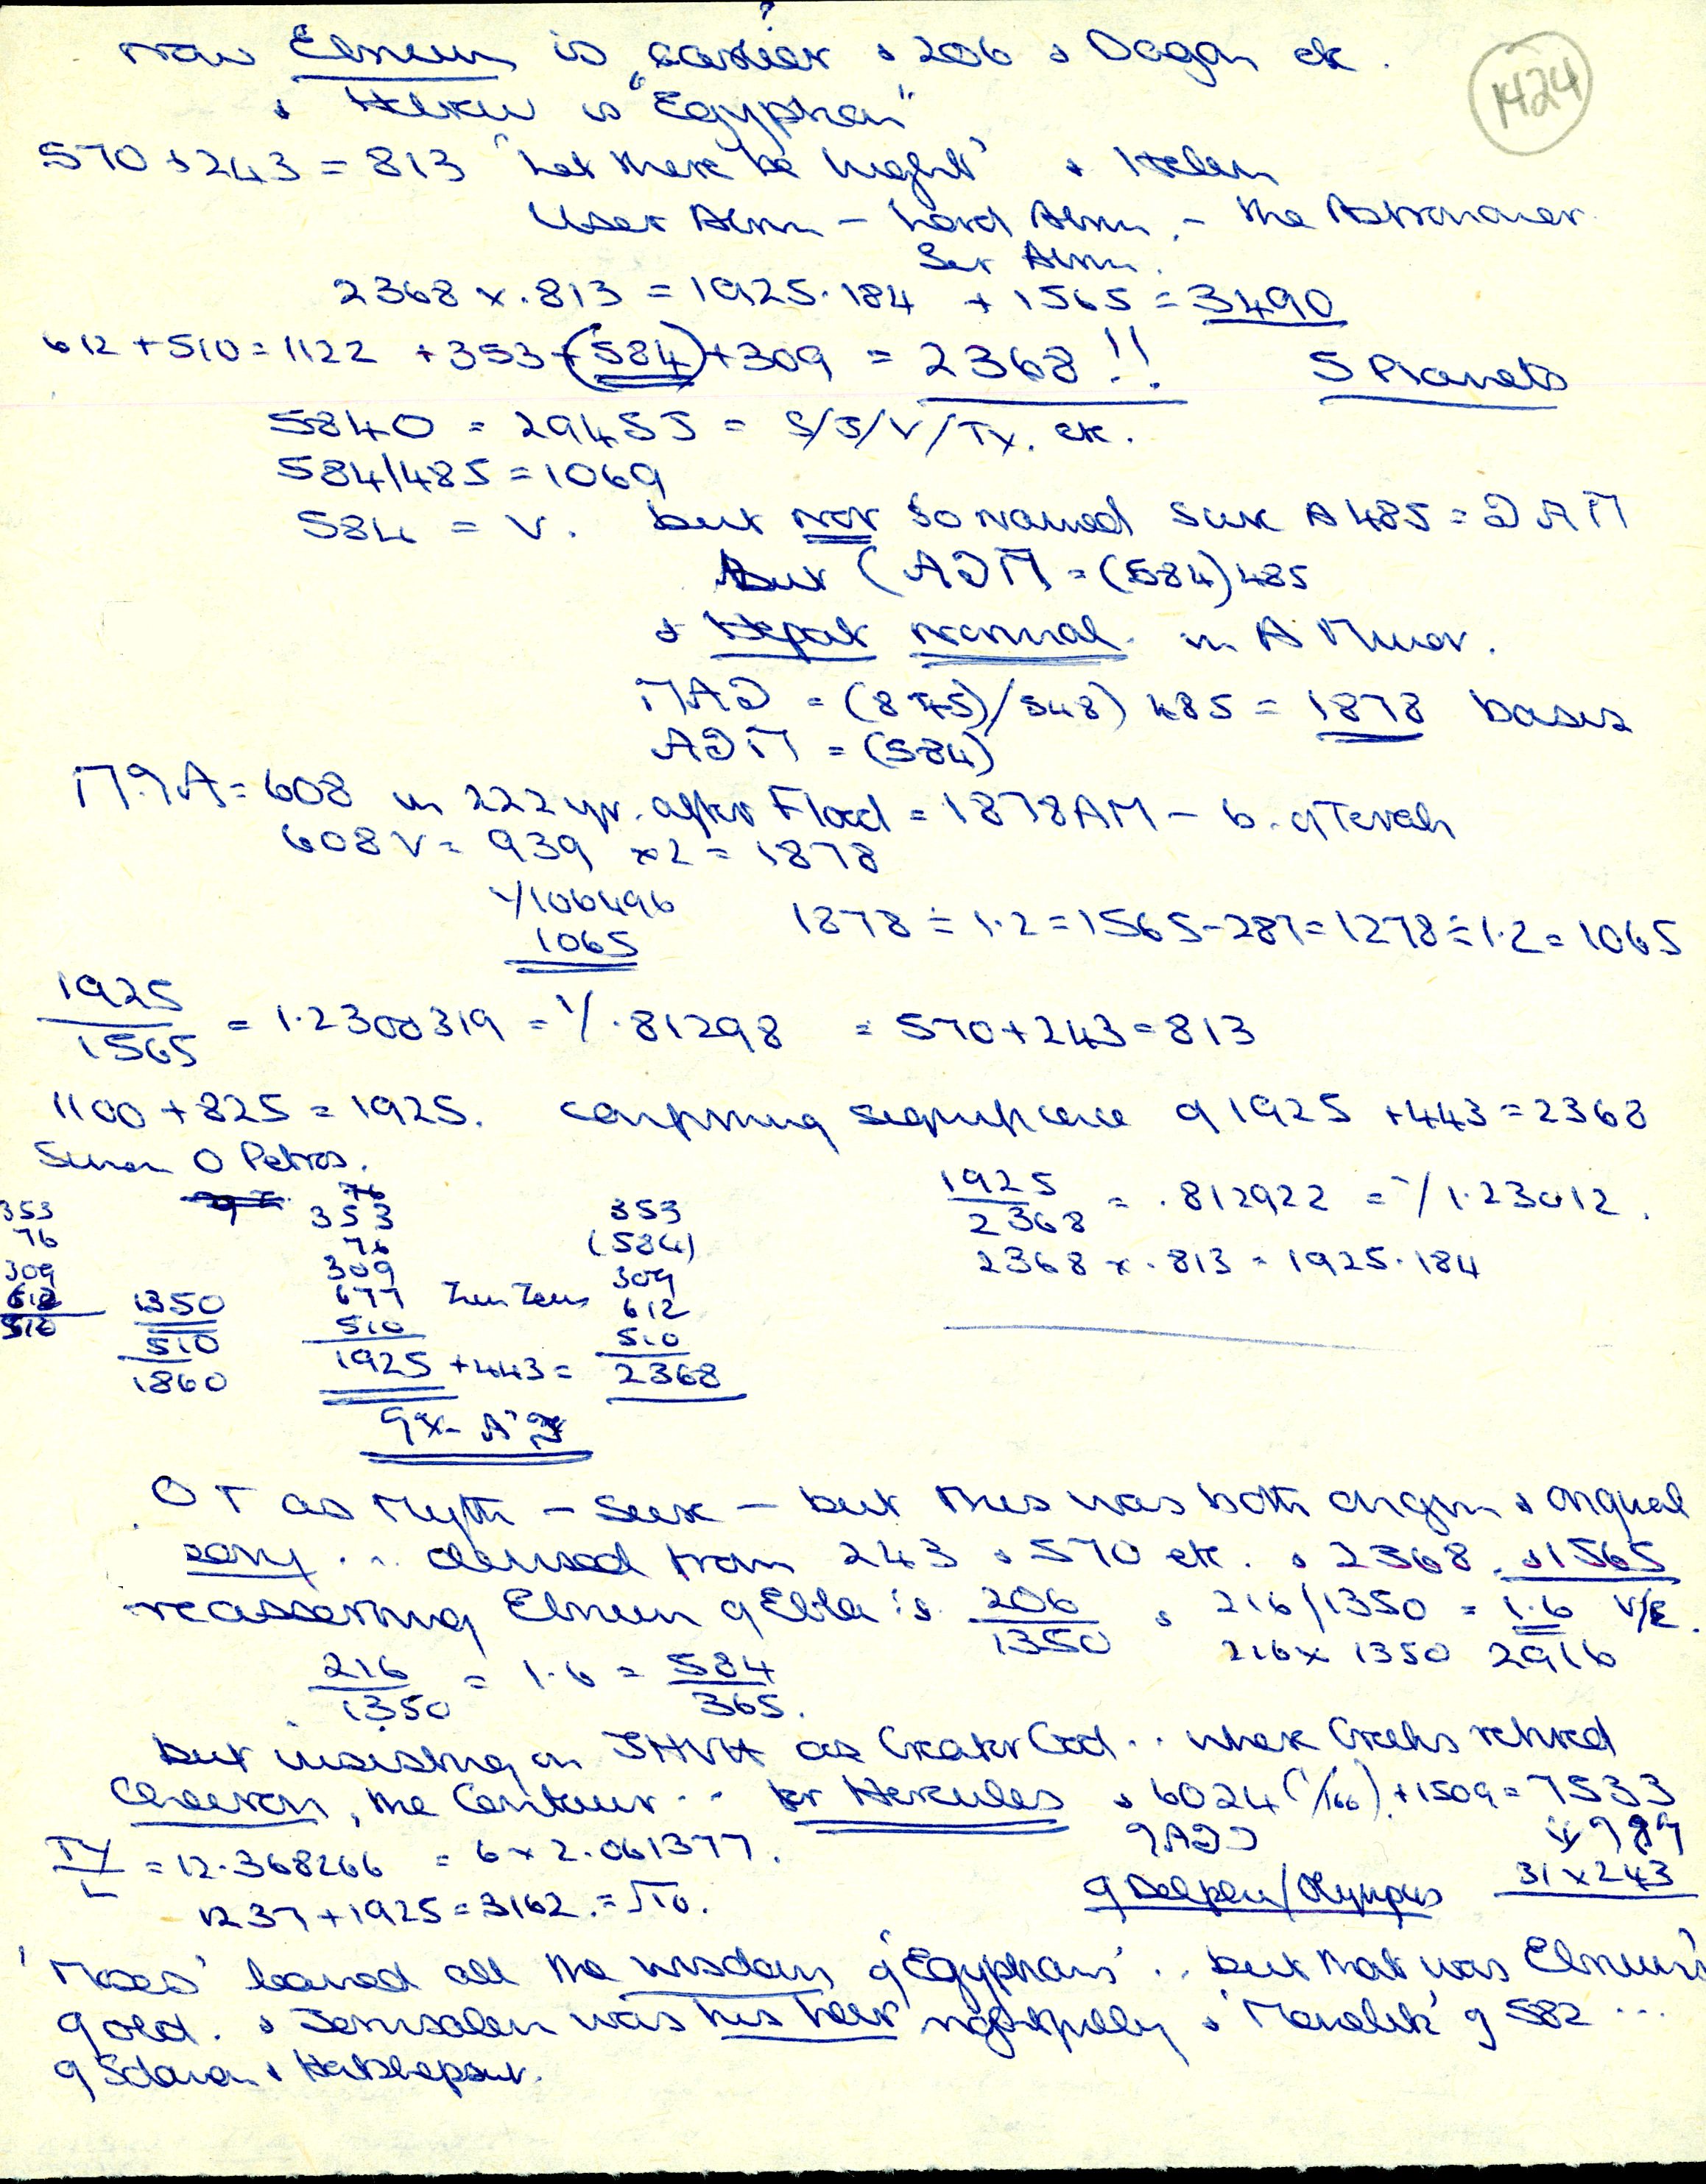 now Elmum is "earlier & 206 & Dagan etc.
1424
& Hebrew is "Egyptian"
570 + 243 = 813 "Let there be light" & Helen
User Alim – Lord Alim, – the Astronomer.
Ser Alim.
2368 x .813 = 1925.184 + 1565 = 3490
612 + 510 = 1122 + 353 + (584) + 309 = 2368!! 5 Planets
5840 = 294SJ = S/J/V/Ty. etc.
584/485 = 1069
584 = V. but not so named since A 485 =
But ( = (584) 485
& Hepat normal in A Minor.
= (875)/548) 485 = 1878 basis
= (584)
= 608 in 222 yr. after Flood = 1878 AM – b. of Terah
608 V = 939 x 2 = 1878
1/106496
1065
1878 ÷ 1.2 = 1565 – 287 = 1278 ÷ 1.2 = 1065
1925/1565 = 1.2300319 = 1/.81298 = 570 + 243 = 813
1100 + 825 = 1925. confirming significance of 1925 + 443 = 2368
Simon O Petros.
1925/2368 = .812922 = 1/1.23012.
2368 x .813 = 1925.184
353
76
309
612
510
1350
510
1860
76
353
76
309
677
510
1925 + 443 =
353
(584)
309
612
510
2368
OT as Myth – sure – but this was both origin & original
song ... derived from 243 & 570 etc. & 2368, & 1565
reasserting Elmum of Ebla is 206/1350 & 216/1350 = 1.6 V/E.
216 x 1350 2916
216/1350 = 1.6 = 584/365.
but insisting on JHVH as Creator God .. where Greeks retired
Cheiron, the Centaur .. for Hercules & 6024 (1/166) + 1509 = 7533
TY/L = 12.368266 = 6 x 2.061377.
31 x 243
1237 + 1925 = 3162. = √10.
of Delphi/Olympus
'Moses' learned all the wisdom of 'Egyptians' .. but that was Elmum's
of old. & Jerusalem was his heir rightfully & 'Menelik' of 582 ...
of Solomon & Hatshepsut.